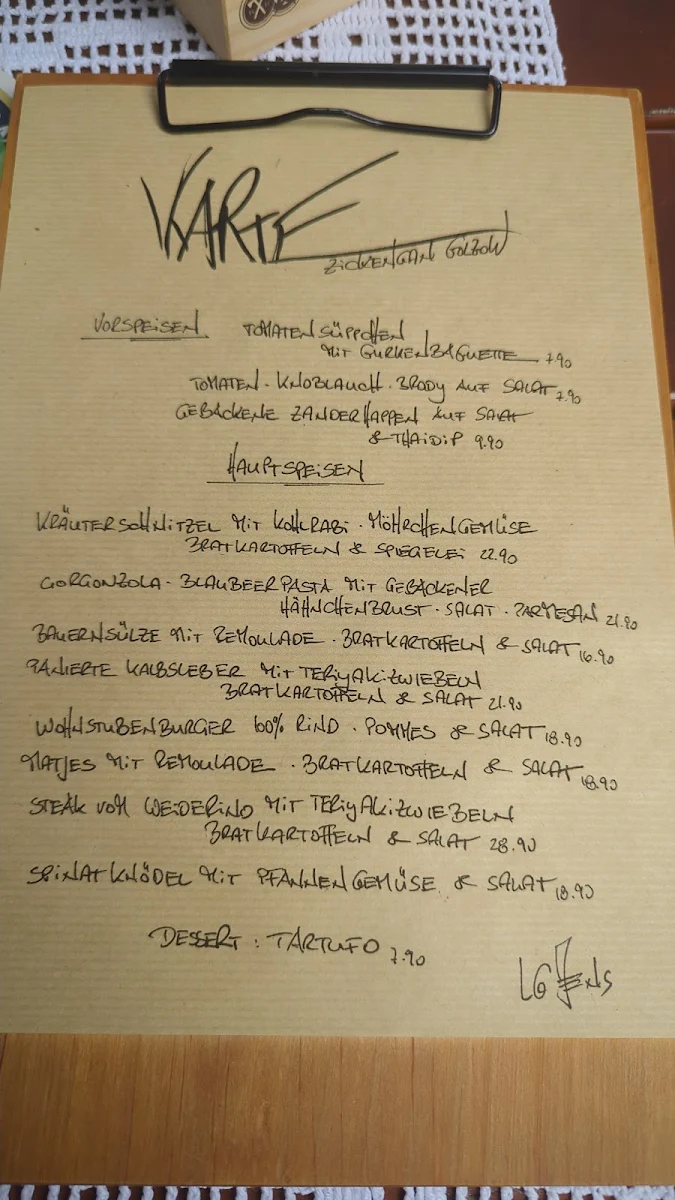 KARTE
ZICKENGANG GOLZOW
VORSPEISEN TOMATENSÜPPCHEN
MIT GURKENBAGUETTE 7.90
TOMATEN · KNOBLAUCH · BRODY AUF SALAT 7.90
GEBACKENE ZANDERHAPPEN AUF SALAT
& THAIDIP 9.90
HAUPTSPEISEN
KRÄUTERSCHNITZEL MIT KOHLRABI · MÖHRCHENGEMÜSE
BRATKARTOFFELN & SPIEGELEI 22.90
GORGONZOLA · BLAUBEERPASTA MIT GEBACKENER
HÄHNCHENBRUST · SALAT · PARMESAN 21.90
BAUERNSÜLZE MIT REMOULADE · BRATKARTOFFELN & SALAT 16.90
PANIERTE KALBSLEBER MIT TERIYAKIZWIEBELN
BRATKARTOFFELN & SALAT 21.90
WOHNSTUBENBURGER 100% RIND · POMMES & SALAT 18.90
MATJES MIT REMOULADE · BRATKARTOFFELN & SALAT 18.90
STEAK VOM WEIDERIND MIT TERIYAKIZWIEBELN
BRATKARTOFFELN & SALAT 28.90
SPINATKNÖDEL MIT PFANNENGEMÜSE & SALAT 18.90
DESSERT : TARTUFO 7.90
LG JENS